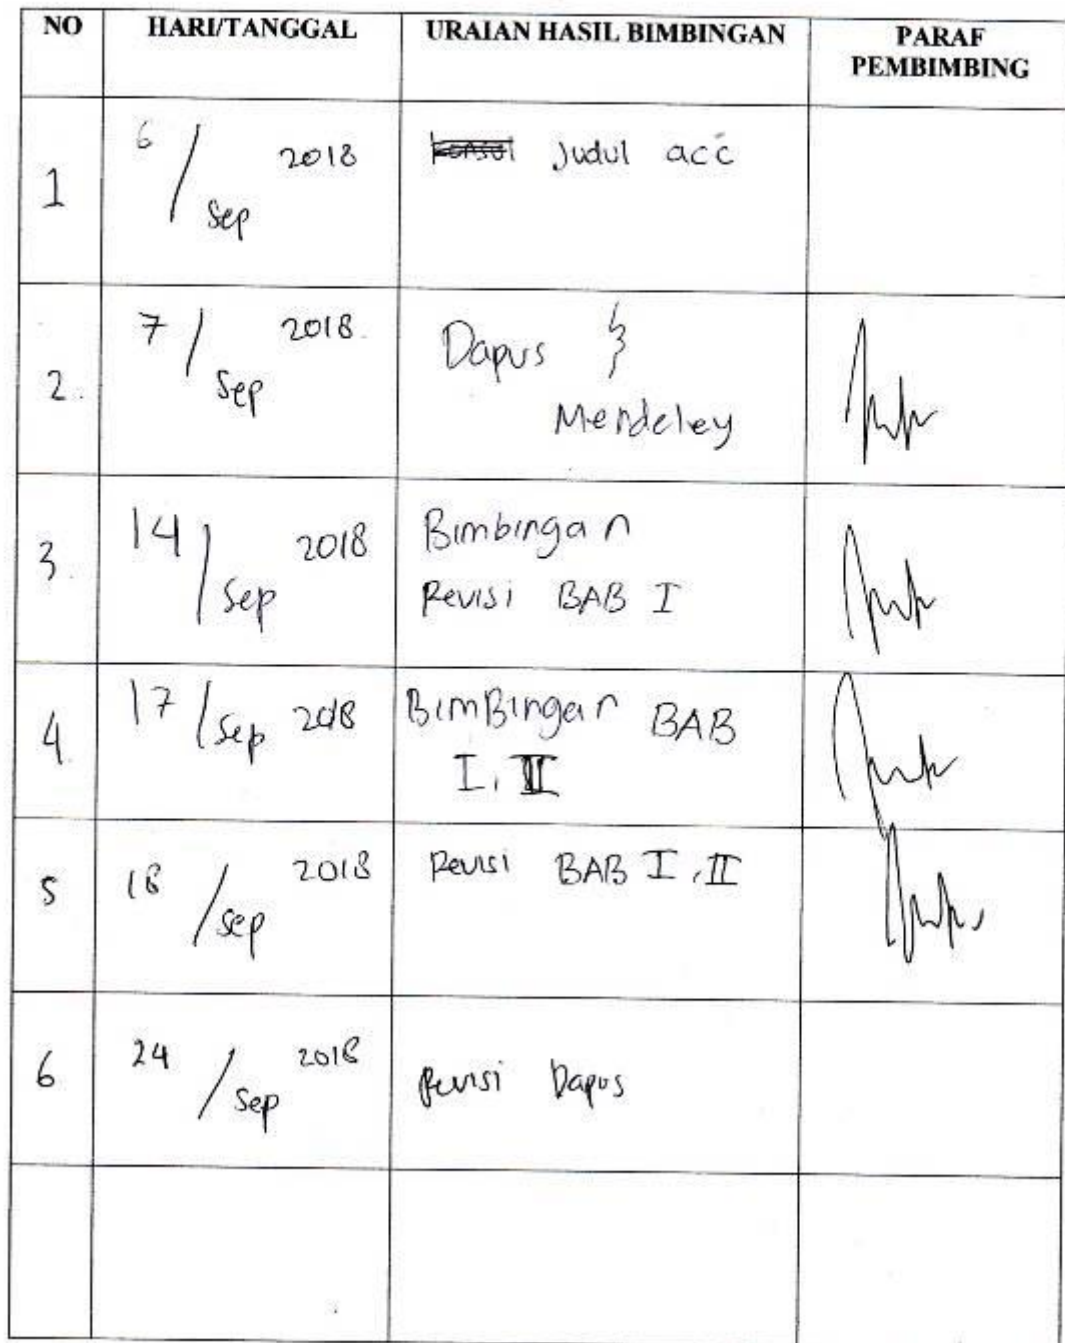 NO HARI/TANGGAL URAIAN HASIL BIMBINGAN PARAF
PEMBIMBING
1 6 / Sep 2018 Judul acc
2. 7 / Sep 2018. Dapus &
Mendeley
3. 14 / Sep 2018 Bimbingan
Revisi BAB I
4. 17 / Sep 2018 BimBingan BAB
I, II
5 18 / Sep 2018 Revisi BAB I, II
6 24 / Sep 2018 Revisi Dapus